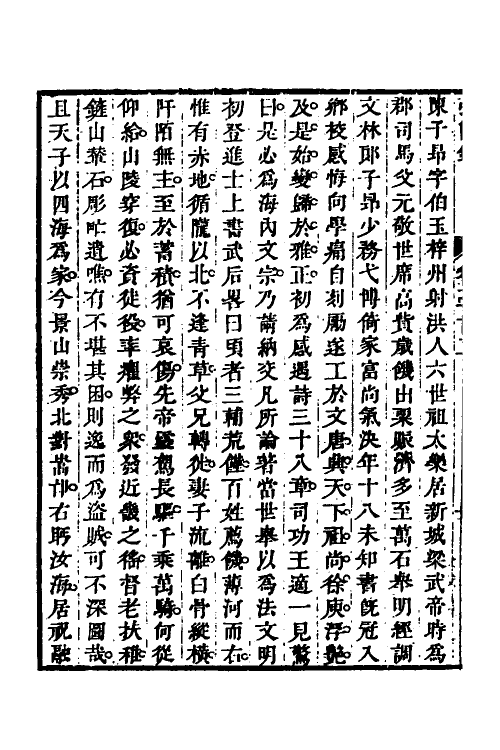 陳子昂字伯玉梓州射洪人六世祖太樂居新城梁武帝時為
郡司馬父元敬世席高貲歲饑出粟賑濟多至萬石舉明經調
文林郎子昂少務弋博倚家富尚氣決年十八未知書旣冠入
鄉校感悔向學痛自刻勵遂工於文唐興天下祖尚徐庾浮艷
及是始變歸於雅正初為感遇詩三十八章司功王適一見驚
曰是必為海內文宗乃請納交凡所論著當世舉以為法文明
初登進士上書武后畧曰頃者三輔荒饉百姓薦饑薄河而右
惟有赤地循隴以北不逢青草父兄轉徙妻子流離白骨縱橫
阡陌無主至於蓄積猶可哀傷先帝靈駕長驅千乘萬騎何從
仰給山陵穿復必資徒役率癯弊之衆發近畿之徭督老扶稚
鏟山輦石彫甿遺噍有不堪其困則逸而為盜賊可不深圖哉
且天子以四海為家今景山崇秀北對嵩邙右眄汝海居祝融